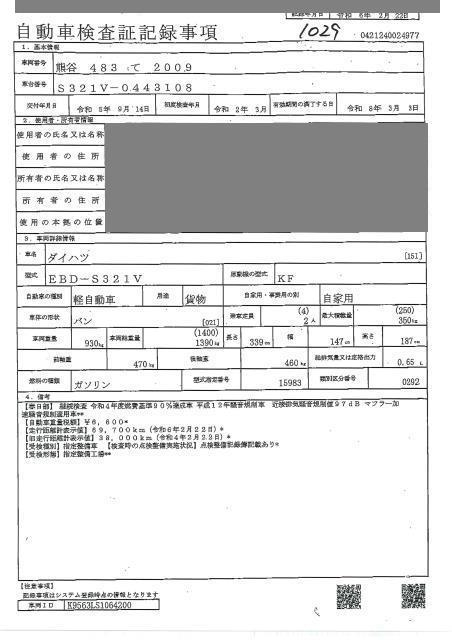 記録年月日 令和 6年 2月 22日
自動車検査証記録事項
1029
0421240024977
1. 基本情報
車両番号 熊谷 483 て 2009
車台番号 S321V-0443108
交付年月日 令和 5年 9月 14日 初度検査年月 令和 2年 3月 有効期間の満了する日 令和 8年 3月 3日
2. 使用者・所有者情報
使用者の氏名又は名称
使用者の住所
所有者の氏名又は名称
所有者の住所
使用の本拠の位置
3. 車両詳細情報
車名 ダイハツ [151]
型式 EBD-S321V 原動機の型式 KF
自動車の種別 軽自動車 用途 貨物 自家用・事業用の別 自家用
車体の形状 バン [021] 乗車定員 (4) 2人 最大積載量 (250) 350kg
車両重量 930kg 車両総重量 (1400) 1390kg 長さ 339cm 幅 147cm 高さ 187cm
前軸重 470kg 後軸重 460kg 総排気量又は定格出力 0.65 L
燃料の種類 ガソリン 型式指定番号 15983 類別区分番号 0292
4. 備考
【春日部】 継続検査 令和4年度燃費基準90%達成車 平成12年騒音規制車 近接排気騒音規制値97dB マフラー加
速騒音規制適用車**
【自動車重量税額】¥6,600*
【走行距離計表示値】69,700km(令和6年2月22日)*
【旧走行距離計表示値】38,000km(令和4年2月22日)*
【受検種別】指定整備車 【検査時の点検整備実施状況】点検整備記録簿記載あり*
【受検形態】指定整備工場**
【注意事項】
記載事項はシステム登録時点の情報となります
車両ID K9563LS1064200